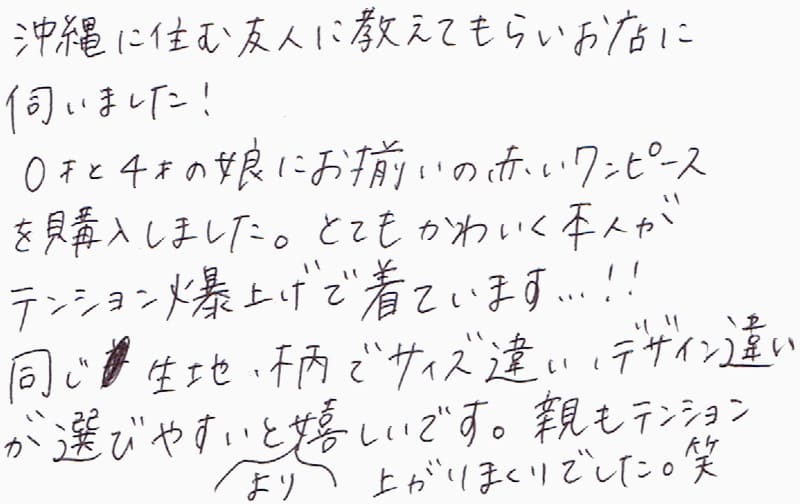 沖縄に住む友人に教えてもらいお店に
伺いました!
0才と4才の娘にお揃いの赤いワンピース
を購入しました。とてもかわいく本人が
テンション爆上げで着ています…!!
同じ生地、柄でサイズ違い、デザイン違い
が選びやすいと嬉しいです。親もテンション
より 上がりまくりでした。笑